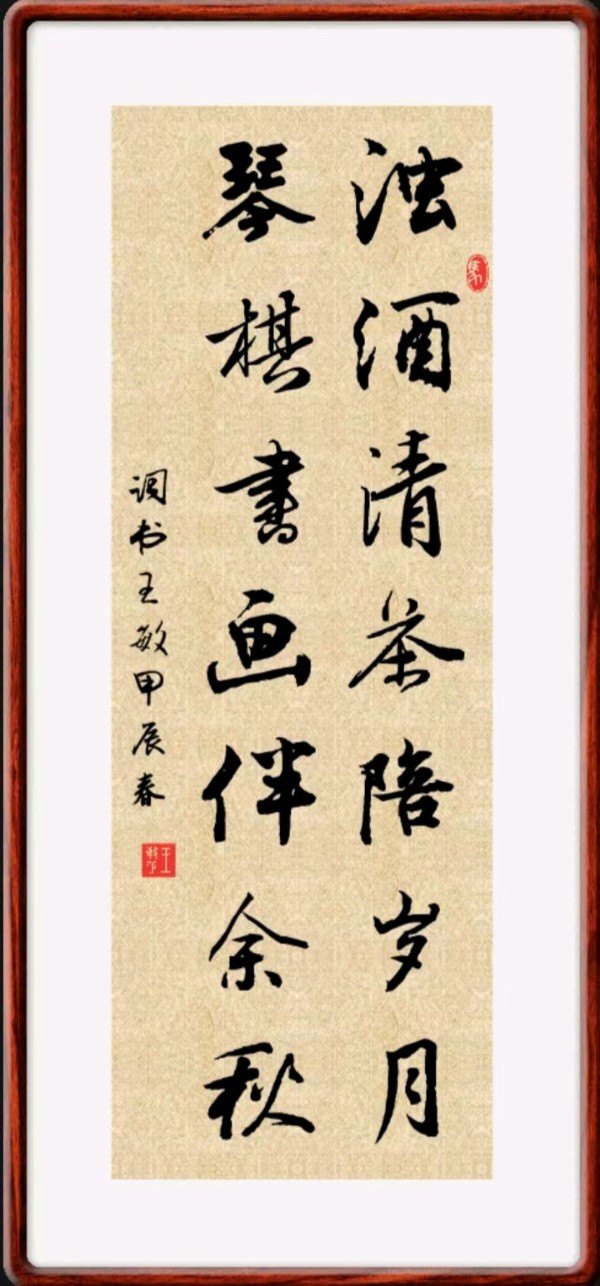 浊酒清茶陪岁月
琴棋書画伴余秋
调书王敏甲辰春